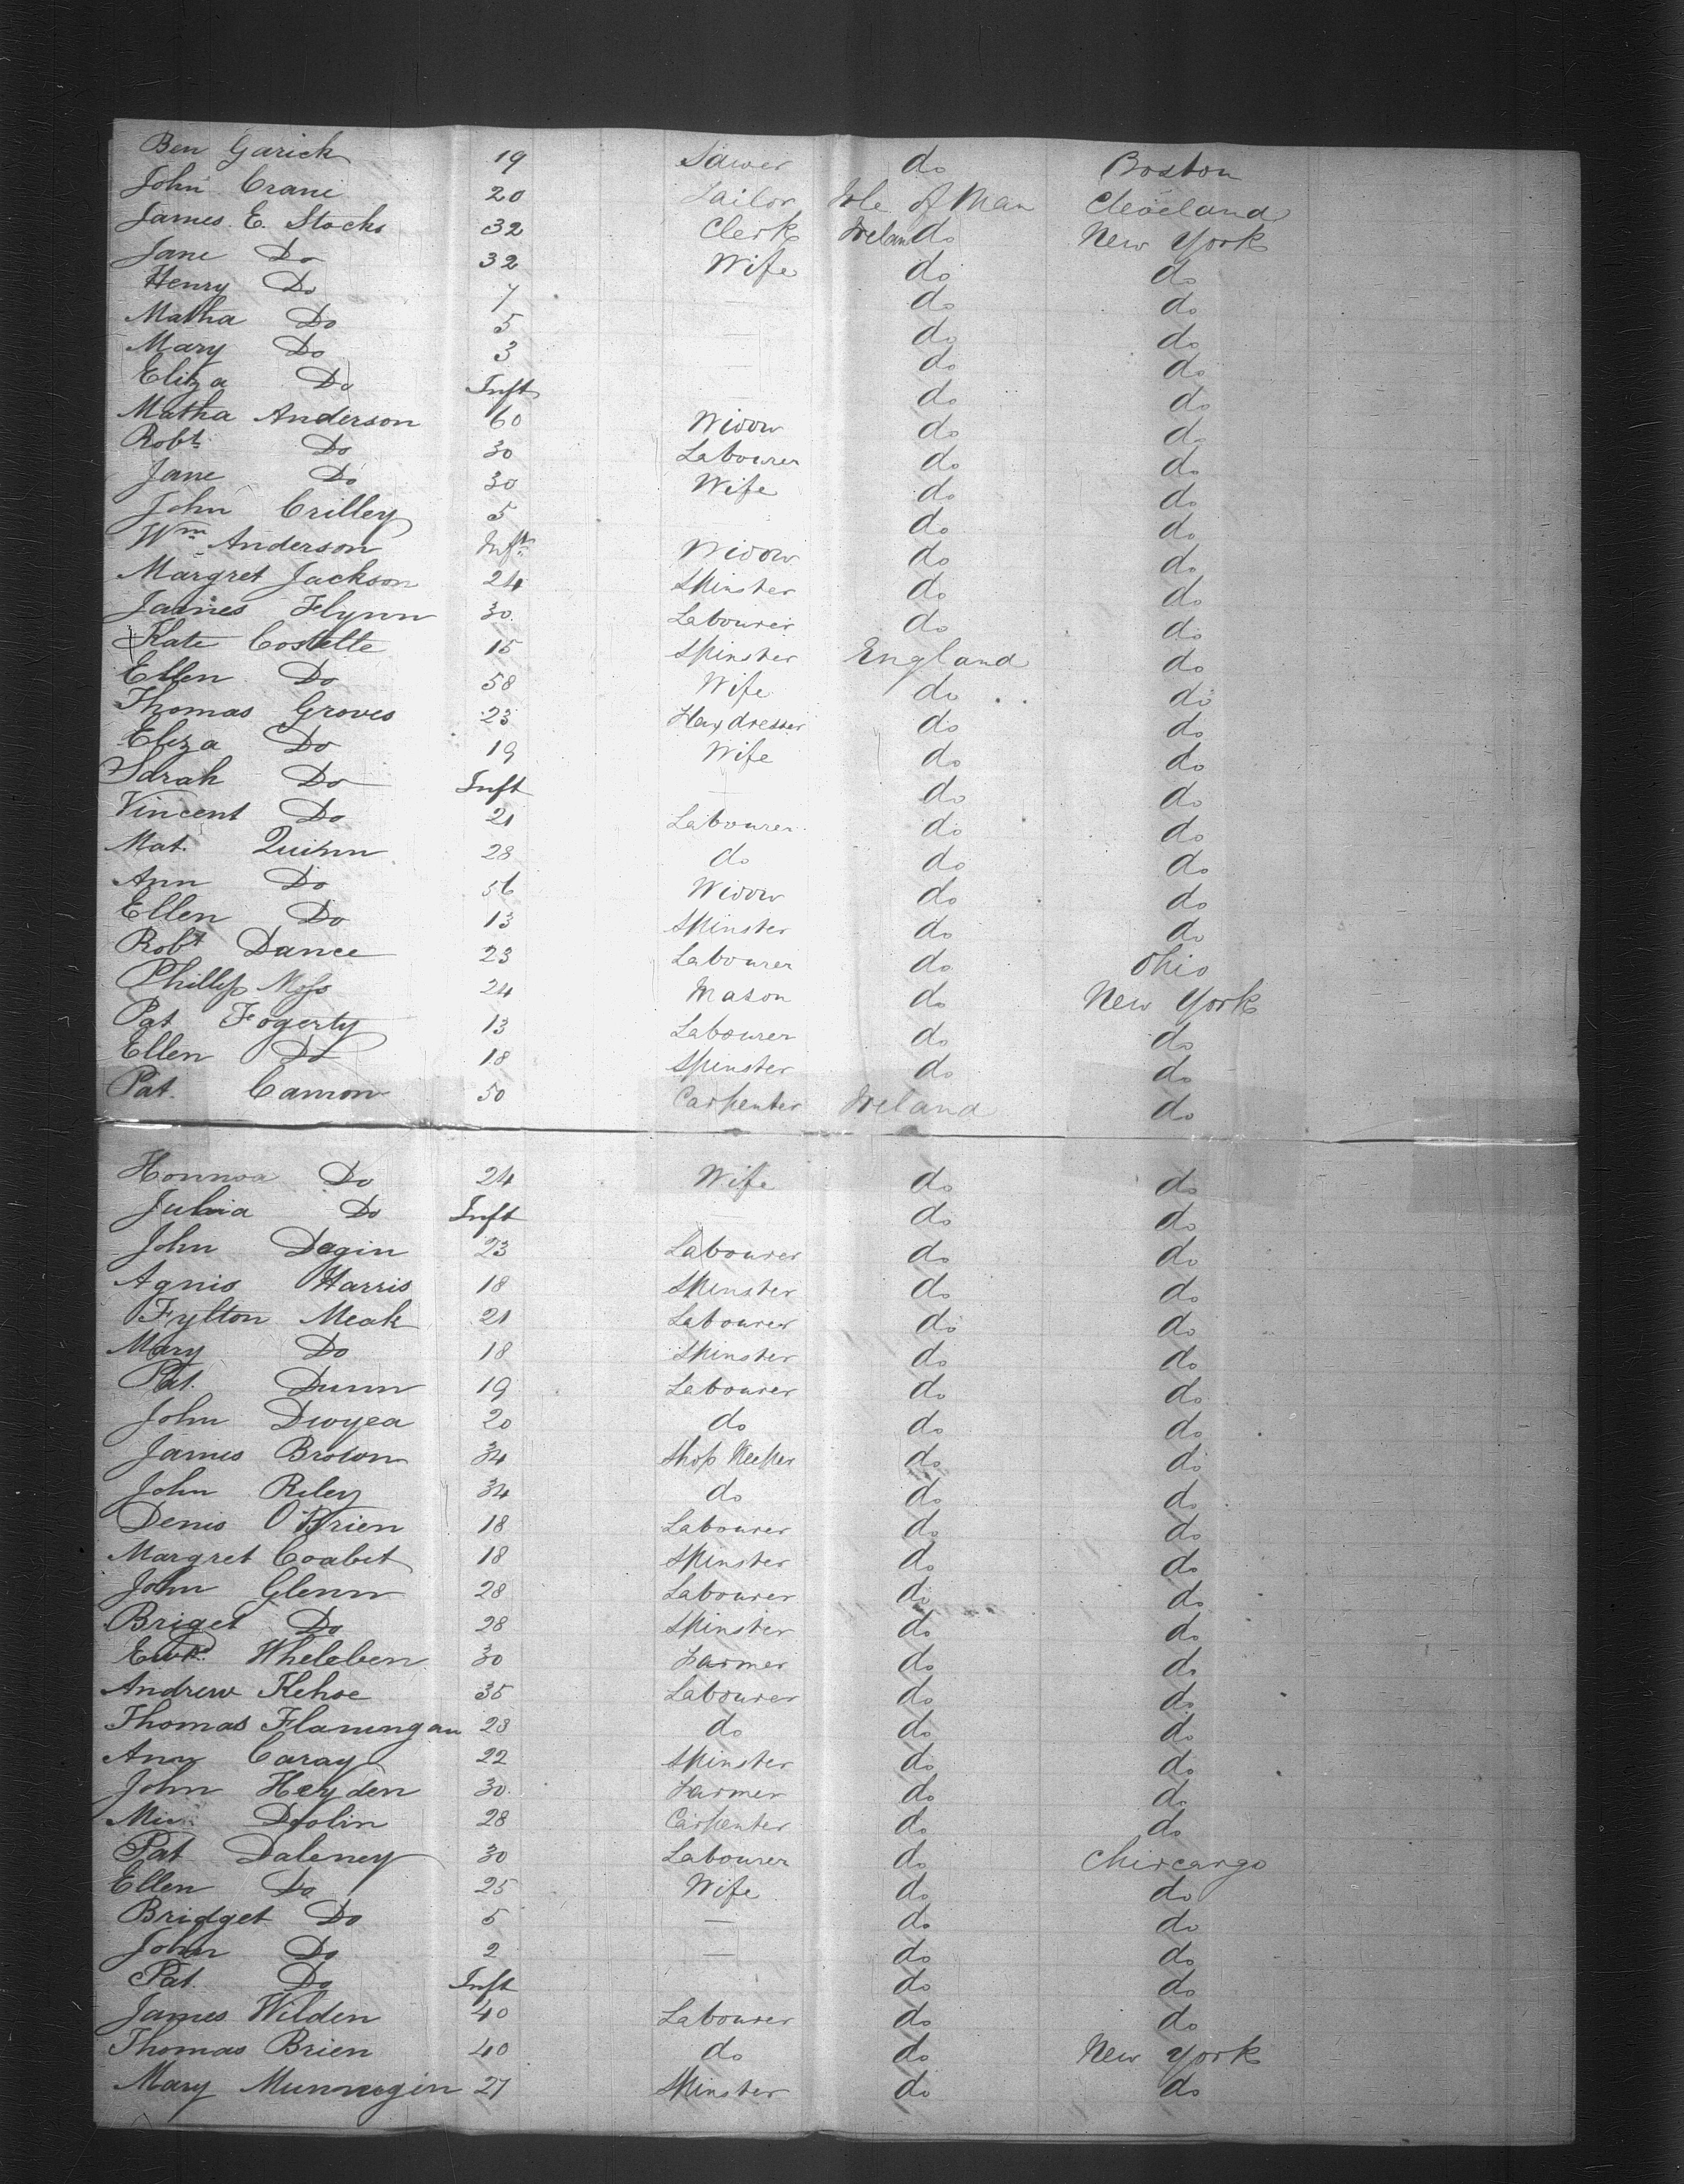 Ben Garick 19 Sawer do Boston
John Crane 20 Tailor Isle of Man Cleveland
James E. Stocks 32 Clerk Ireland do New York
Jane Do 32 Wife do do
Henry Do 7 do do
Matha Do 5 do do
Mary Do 3 do do
Eliza Do Inft do do
Matha Anderson 60 Widow do do
Robt Do 30 Labourer do do
Jane Do 30 Wife do do
John Crilley 5 do do
Wm Anderson Inft Widow do do
Margret Jackson 24 Spinster do do
James Flynn 30 Labourer do do
Kate Costelte 15 Spinster England do
Ellen Do 58 Wife do do
Thomas Groves 23 do do
Eliza Do 19 Wife do do
Sarah Do Inft do do
Vincent Do 21 Labourer do do
Mat. Quinn 28 do do do
Ann Do 56 Widow do do
Ellen Do 13 Spinster do do
Robt Dance 23 Labourer do Ohio
Phillip 24 Mason do New York
Pat Fogerty 13 Labourer do do
Ellen Do 18 Spinster do do
Pat. Camon 50 Carpenter Ireland do
Honnoa Do 24 Wife do do
Julia Do Inft do do
John Dagin 23 Labourer do do
Agnis Harris 18 Spinster do do
Fylton Meak 21 Labourer do do
Mary Do 18 Spinster do do
Pat. Dunn 19 Labourer do do
John Dwyea 20 do do do
James Brown 34 Shop Keeper do do
John Riley 34 do do do
Denis O'Brien 18 Labourer do do
Margret Coabet 18 Spinster do do
John Glenn 28 Labourer do do
Briget Do 28 Spinster do do
Ewd. Wheleben 30 Farmer do do
Andrew Kehoe 35 Labourer do do
Thomas Flaningan 28 do do do
Ann Caray 22 Spinster do do
John Heyden 30 Farmer do do
Mic. Dolin 28 Carpenter do do
Pat Daleney 30 Labourer do Chircargo
Ellen Do 25 Wife do do
Bridget Do 5 — do do
John Do 2 — do do
Pat. Do Inft do do
James Wilden 40 Labourer do do
Thomas Brien 40 do do New York
Mary Munnegin 27 Spinster do do